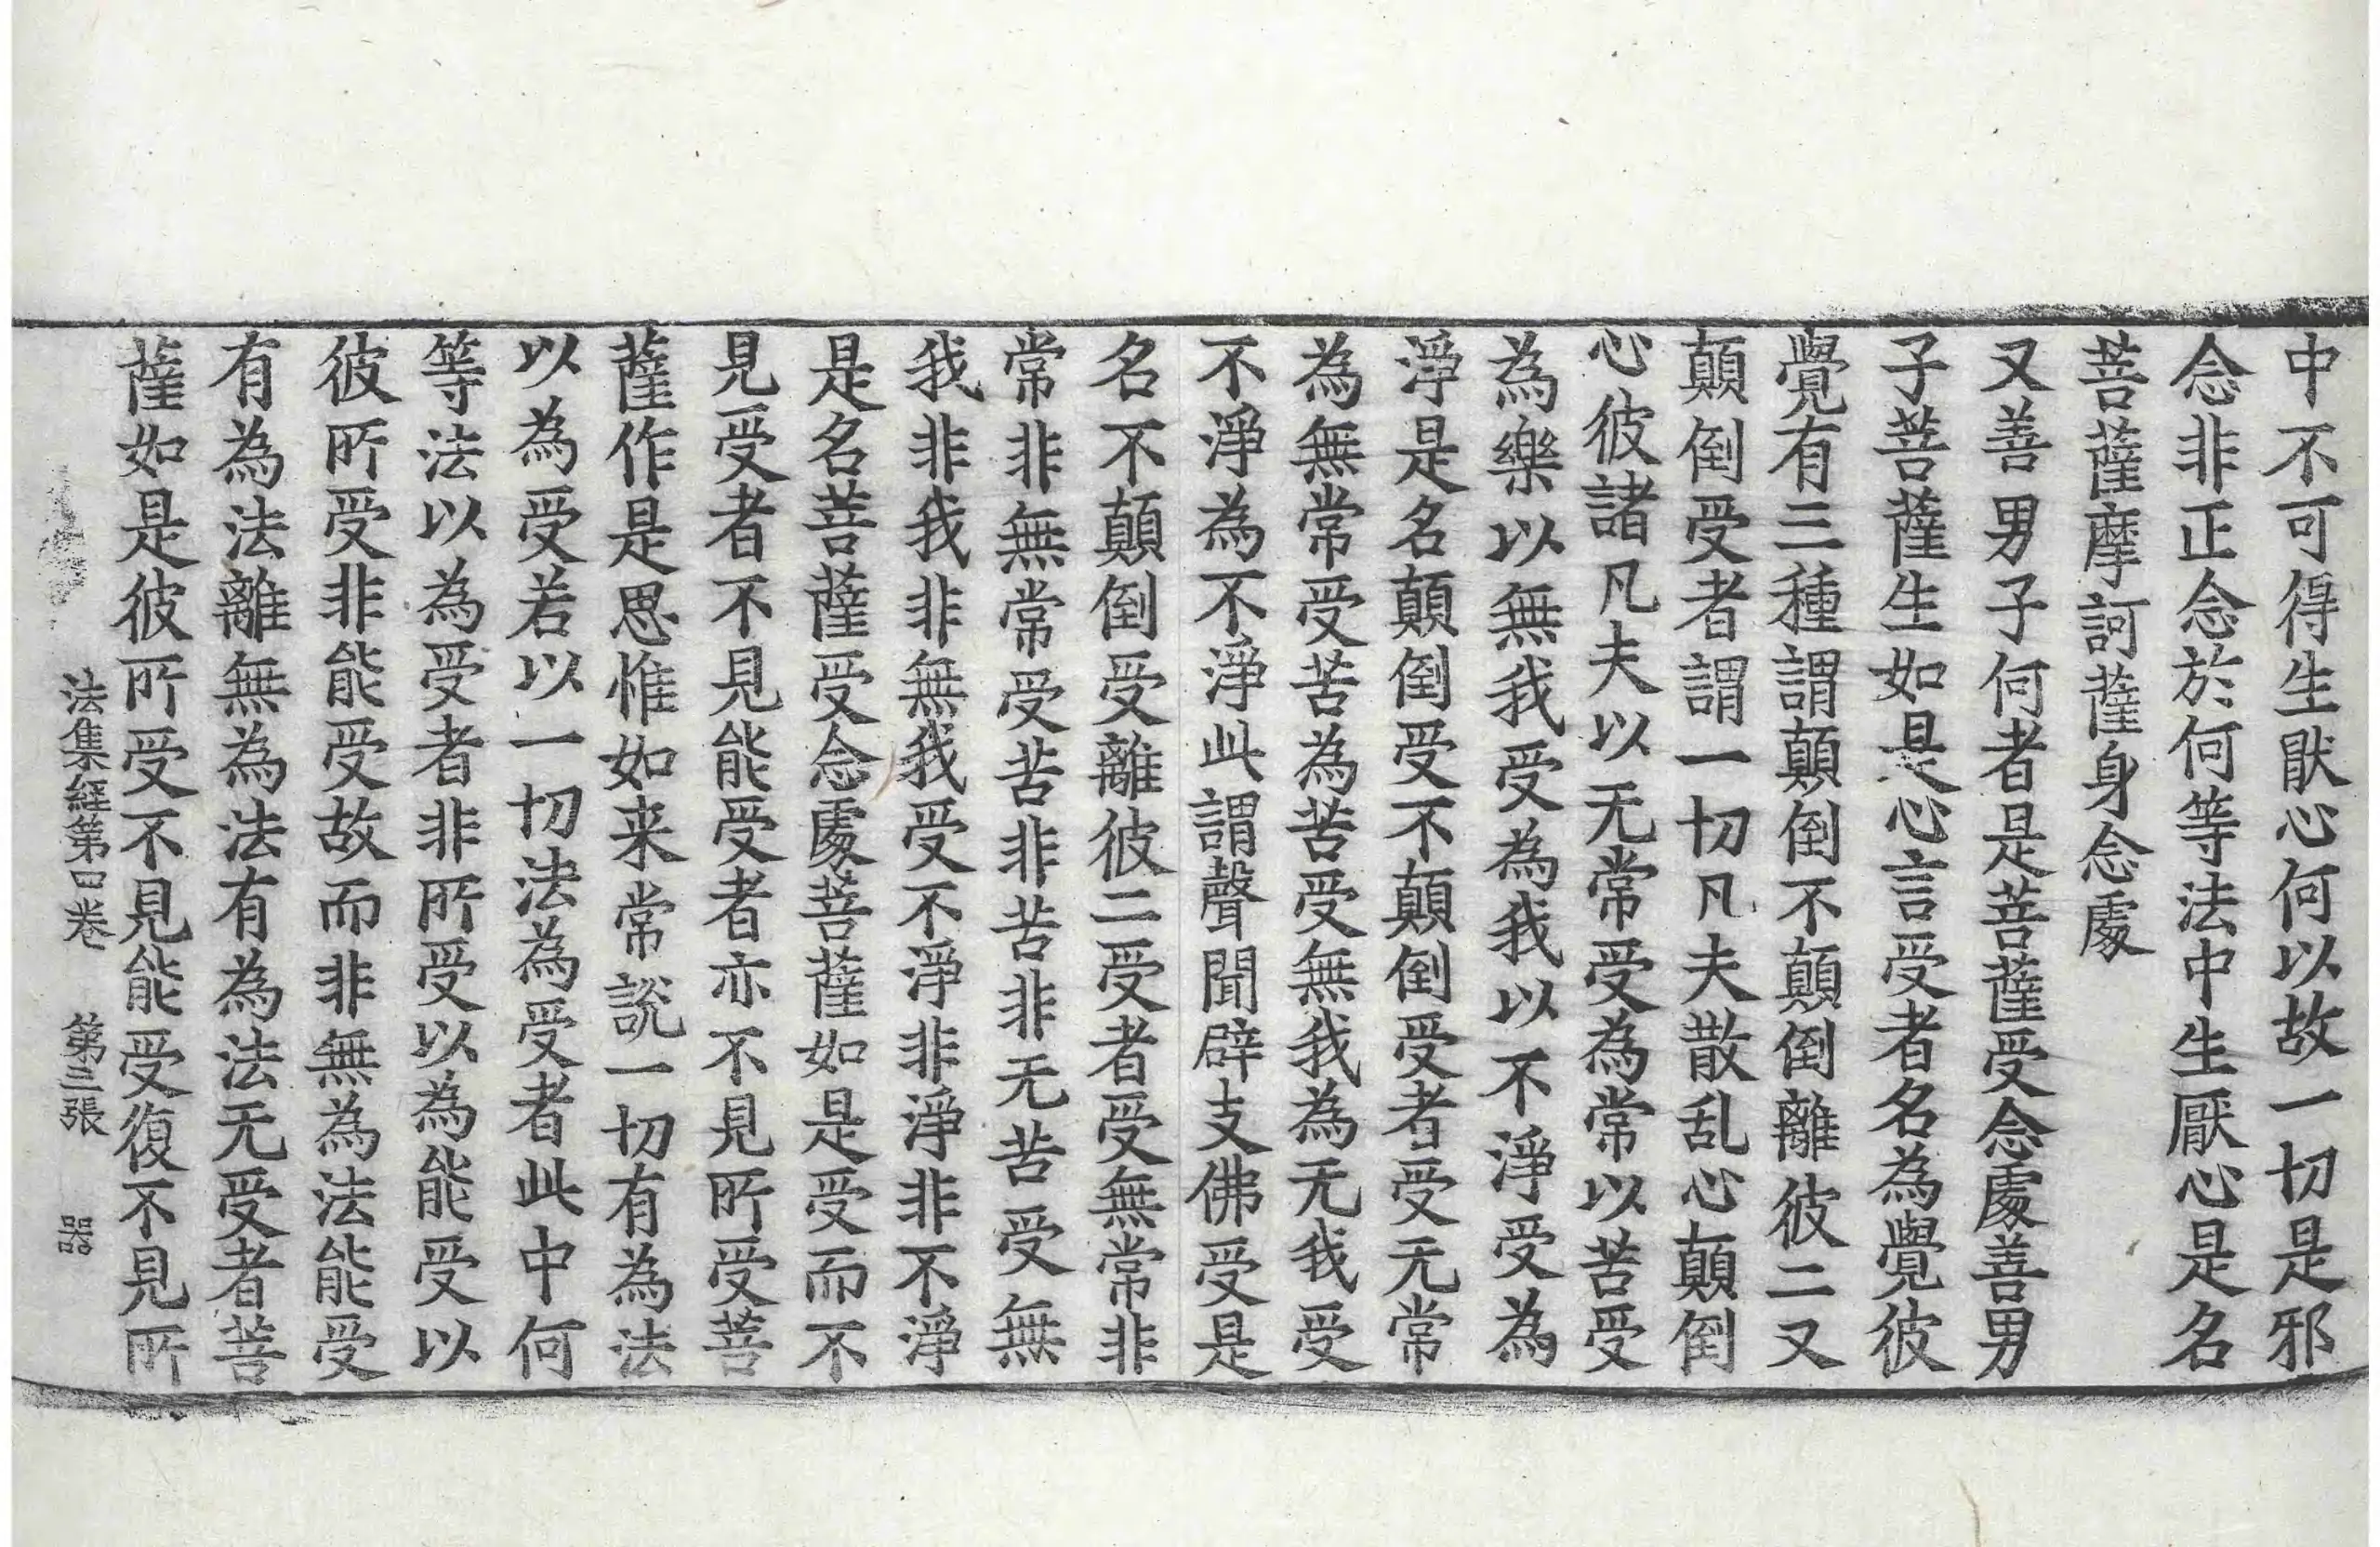 中不可得生猒心何以故一切是邪
念非正念於何等法中生厭心是名
菩薩摩訶薩身念處
又善男子何者是菩薩受念處善男
子菩薩生如是心言受者名為覺彼
覺有三種謂顛倒不顛倒離彼二又
顛倒受者謂一切凡夫散乱心顛倒
心彼諸凡夫以无常受為常以苦受
為樂以無我受為我以不淨受為
淨是名顛倒受不顛倒受者受无常
為無常受苦為苦受無我為无我受
不淨為不淨此謂聲聞辟支佛受是
名不顛倒受離彼二受者受無常非
常非無常受苦非苦非无苦受無
我非我非無我受不淨非淨非不淨
是名菩薩受念處菩薩如是受而不
見受者不見能受者亦不見所受菩
薩作是思惟如来常說一切有為法
以為受若以一切法為受者此中何
等法以為受者非所受以為能受以
彼所受非能受故而非無為法能受
有為法離無為法有為法无受者菩
薩如是彼所受不見能受復不見所
法集經第四卷 第三張 器